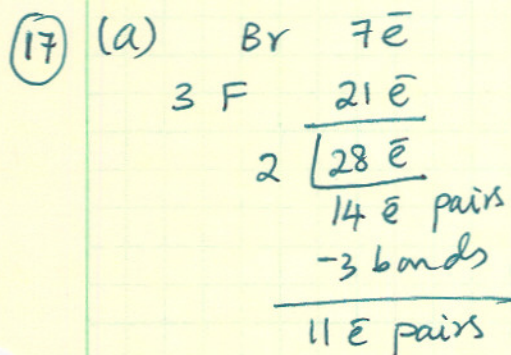 17 (a) Br 7ē
3 F 21 ē
2 28 ē
14 ē pairs
-3 bonds
11 ē pairs